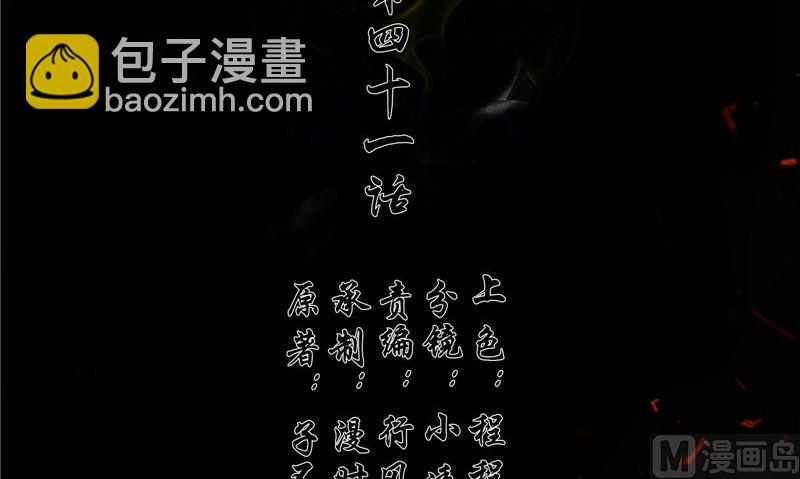 包子漫畫
baozimh.com
四十一话
上色：程
分镜：小
责编：行
承制：漫
原著：子
漫画岛